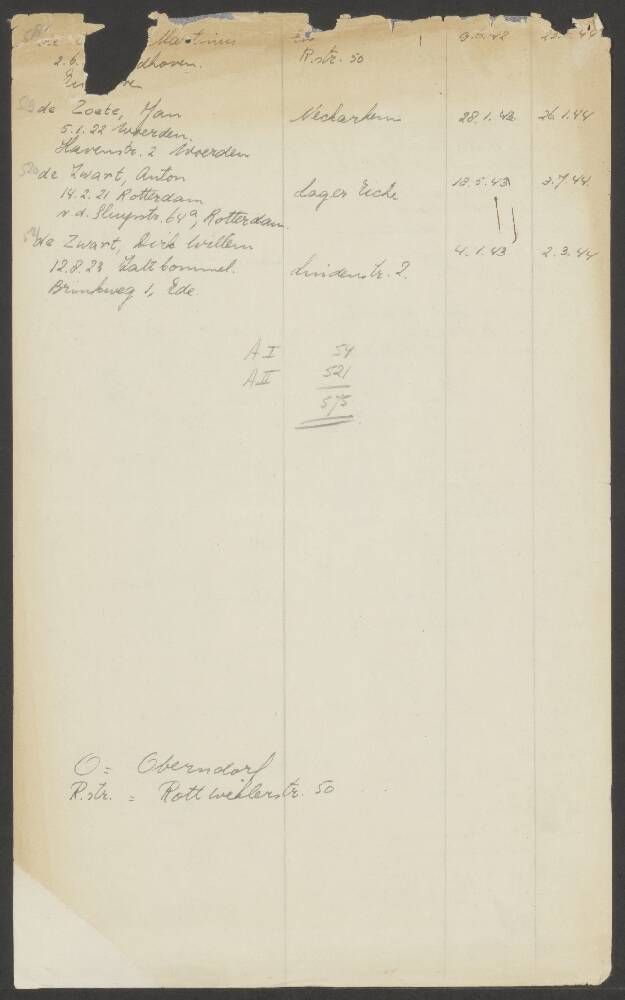 Martinus
2.6. dhoven. R.str. 50
de Zoete, Jan Neckarhem 28.1.43 26.1.44
5.1.22 Woerden.
Havenstr. 2 Woerden
520 de Zwart, Anton Lager Eiche 13.5.43 3.7.44
14.2.21 Rotterdam
v.d. Sluysstr. 64a, Rotterdam.
521 de Zwart, Dirk Willem 4.1.43 2.3.44
12.8.23 Zaltbommel. Lindenstr. 2.
Brinkweg 1, Ede.
A I 54
A II 521
575
O = Oberndorf
R.str. = Rottweilerstr. 50